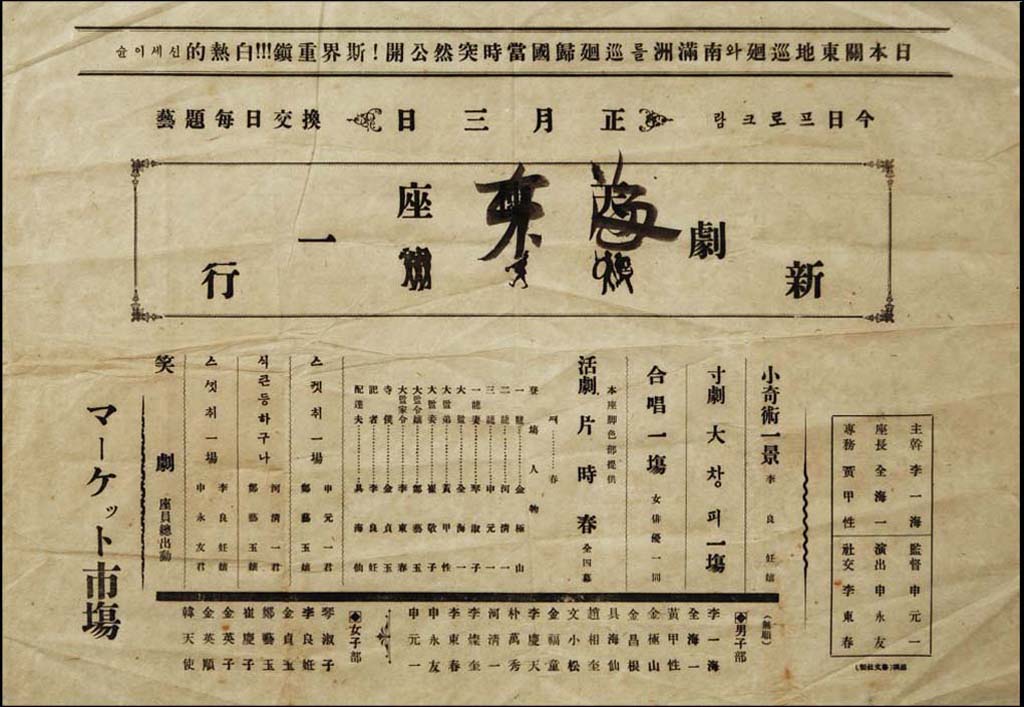 日本關東地巡廻와南滿洲를巡廻歸國當時突然公開!斯界重鎭!!!白熱的신세이숀
今日프로크람
正月三日
每日交換藝題
新劇
海東
座一行
主幹 李一海
座長 全海一
專務 黃甲性
監督 申元一
演出 申永友
社交 李東春
小奇術一景 李良姙孃
寸劇 大챵피一塲
合唱一塲 女俳優一同
本座脚色部提供
活劇 片時春 全四幕
때……春
登塲人物
一龍……金極山
二龍……河淸一
三龍……申元一
一龍妻……琴淑子
大監……全海一
大監弟……黃甲性
大監妾……崔敬子
大監令孃……鄭藝玉
大監家令……李東春
寺僕……金貞玉
記者……李良姙
配達夫……具海仙
스켓취一塲 申元一君 鄭藝玉孃
식큰등하구나 河淸一君 鄭藝玉孃
스켓취一塲 李良姙孃 申永友君
笑劇 座員總出動
マーケット市塲
(無順)
◆男子部
李一海
全海一
黃甲性
金極山
金昌根
具海仙
趙相奎
文小松
金福童
李慶天
朴萬秀
河淸一
李燦奎
李東春
申永友
申元一
◆女子部
琴淑子
李良姙
金貞玉
鄭藝玉
崔慶子
金英子
金英順
韓天使